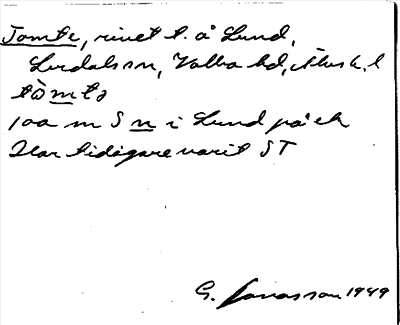 Tomte, rivet t. å Lund,
Lerdals sn, Valbo hd, Älvsb. l
tò̀mtə
100 m S n i Lund på ek
Har tidigare varit ST
G. Jonasson 1949